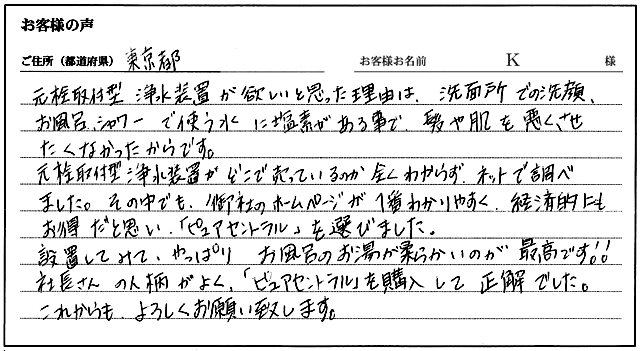 お客様の声
ご住所（都道府県） 東京都 お客様お名前 K 様
元栓取付型 浄水装置が欲しいと思った理由は、洗面所での洗顔、
お風呂、シャワーで使う水に塩素がある事で、髪や肌を悪くさせ
たくなかったからです。
元栓取付型浄水装置がどこで売っているのか全くわからず、ネットで調べ
ました。その中でも、御社のホームページが1番わかりやすく、経済的にも
お得だと思い、「ピュアセントラル」を選びました。
設置してみて、やっぱり お風呂のお湯が柔らかいのが最高です!!
社長さんの人柄がよく、「ピュアセントラル」を購入して正解でした。
これからも、よろしくお願い致します。